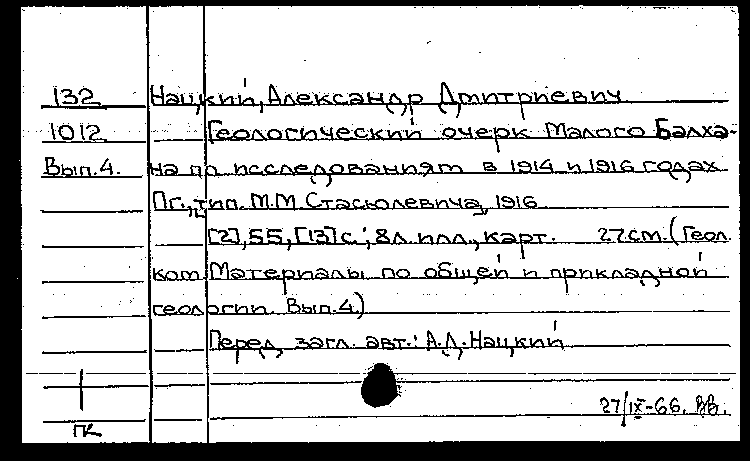 132 Нацкий, Александр Дмитриевич
1012 Геологический очерк Малого Балха-
Вып.4. на по исследованиям в 1914 и 1916 годах
Пг., тип. М.М. Стасюлевича, 1916
[2], 55, [13] с.; 8 л. илл., карт. 27 см. (Геол.
ком. Материалы по общей и прикладной
геологии. Вып.4.)
Перед загл. авт.: А.Д. Нацкий
27/IX-66. ВВ.
ПК